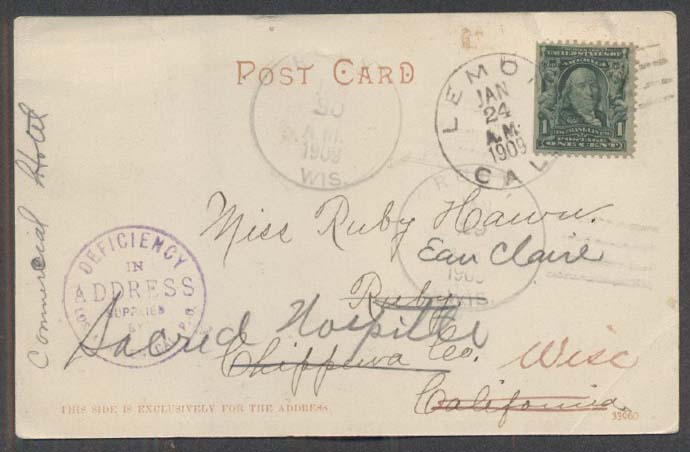 POST CARD
LEMO
JAN
24
A.M.
1909
CAL
1
POSTAGE
ONE CENT
30
A.M.
1909
WIS.
Commercial Hotel
Miss Ruby Hawn.
Eau Claire
WIS.
Ruby
DEFICIENCY
IN
ADDRESS
SUPPLIED
BY
Sacred Hospital
Chippewa Co.
Wisc
California
THIS SIDE IS EXCLUSIVELY FOR THE ADDRESS.